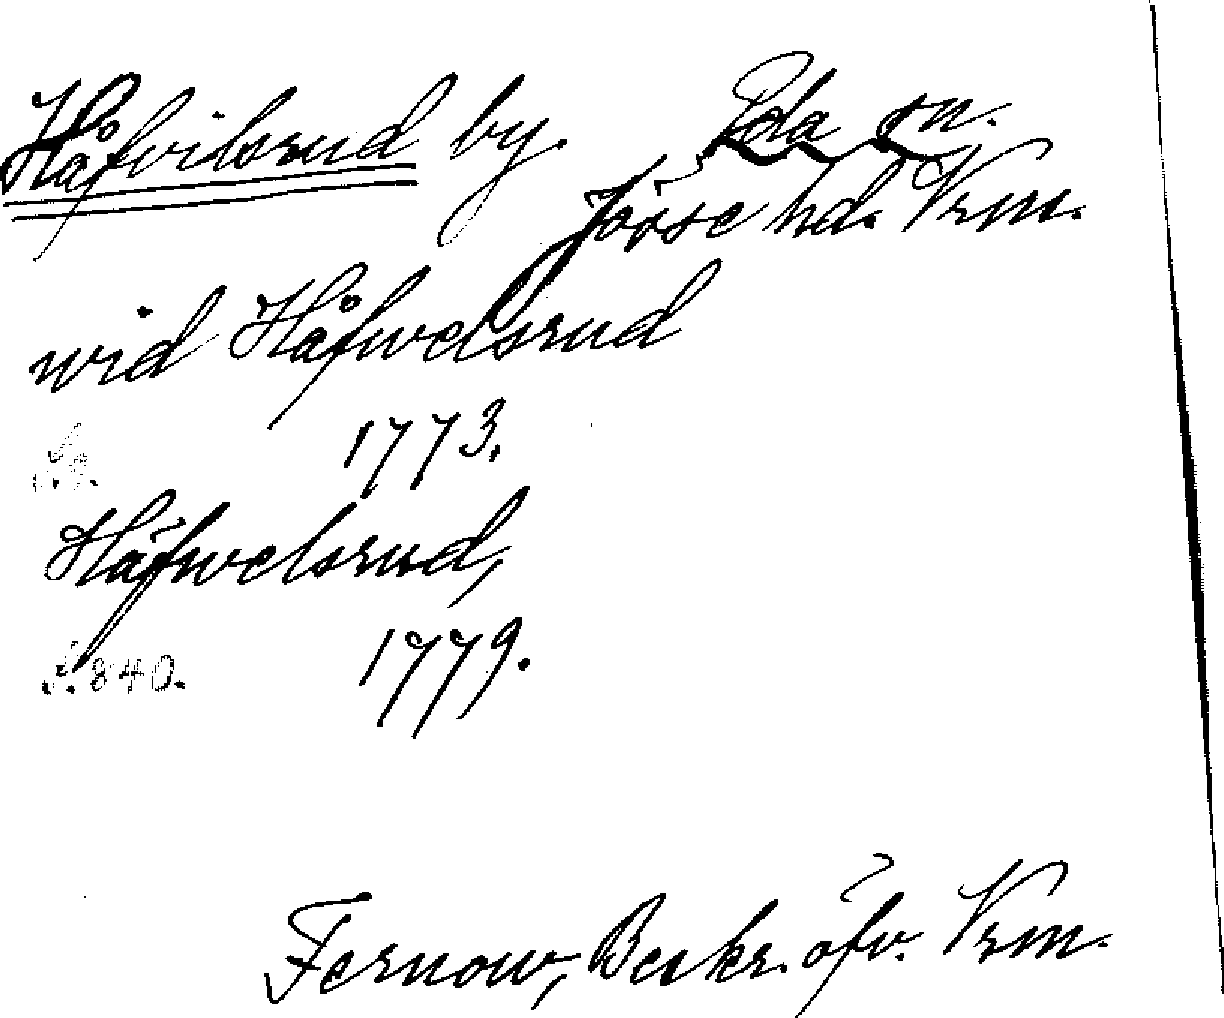 Håfvilsrud by. Eda sn.
Jösse hd. Vrm.
wid Håfwelsrud
1773.
Häfwelsrud,
S. 840. 1779.
Fernow, Beskr. öfv. Vrm.